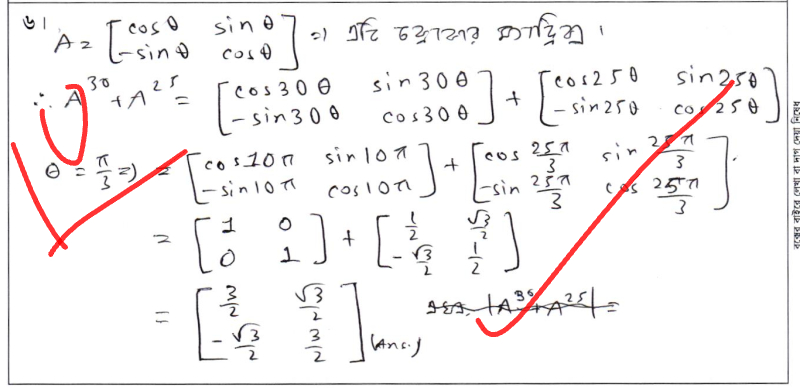 ৬। A = [cosθ sinθ
-sinθ cosθ] ⇒ এটি
∴ A³⁰ + A²⁵ = [cos30θ sin30θ
-sin30θ cos30θ] + [cos25θ sin25θ
-sin25θ cos25θ]
θ = π/3 ⇒) = [cos10π sin10π
-sin10π cos10π] + [cos 25π/3 sin 25π/3
-sin 25π/3 cos 25π/3].
= [1 0
0 1] + [1/2 √3/2
-√3/2 1/2]
= [3/2 √3/2
-√3/2 3/2] (Ans.)
|A³⁰ + A²⁵| =
বক্সের বাইরে লেখা বা দাগ দেয়া নিষেধ